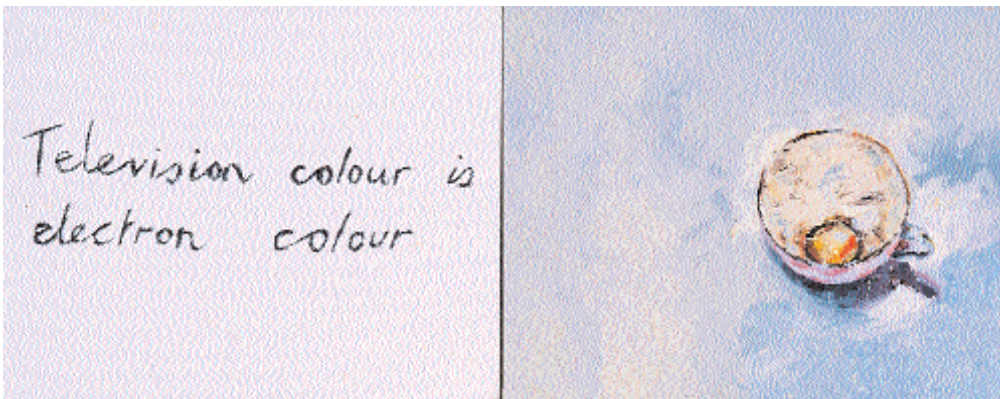 Television colour is
electron colour